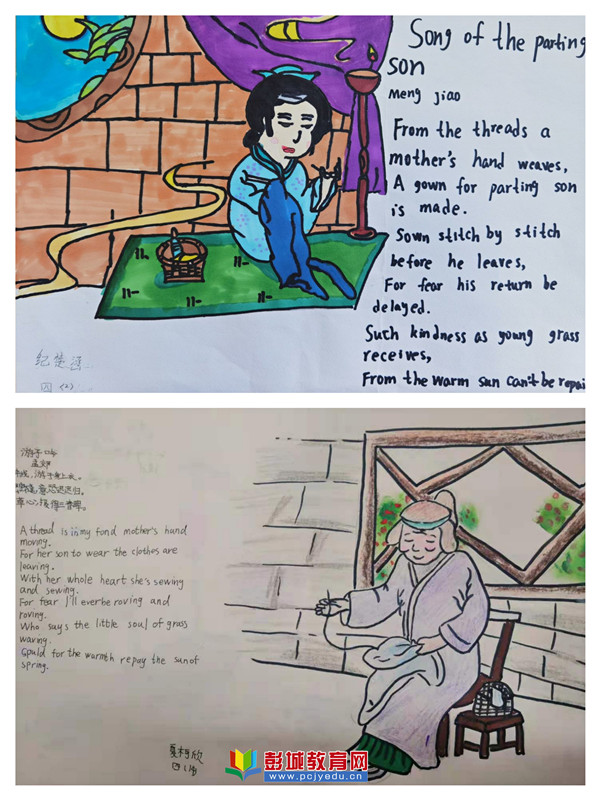 Song of the parting
son
Meng Jiao
From the threads a
mother's hand weaves,
A gown for parting son
is made.
Sown stitch by stitch
before he leaves,
For fear his return be
delayed.
Such kindness as young grass
receives,
From the warm sun can't be repai
四(2)
游子吟
孟郊
游子身上衣。
密缝,意恐迟迟归。
草心,报得三春晖。
A thread is in my fond mother's hand
moving.
For her son to wear the clothes are
leaving.
With her whole heart she's sewing
and sewing.
For fear I'll ever be roving and
roving.
Who says the little soul of grass
waving.
Could for the warmth repay the sun of
spring.
彭城教育网
www.pcjyedu.cn